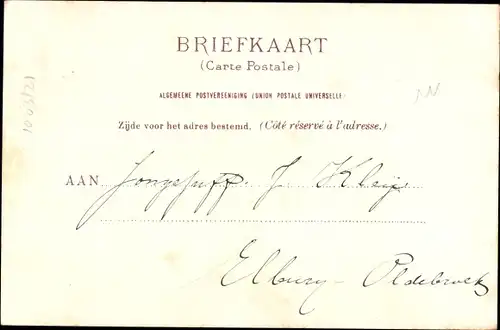 BRIEFKAART
(Carte Postale)
ALGEMEENE POSTVEREENIGING (UNION POSTALE UNIVERSELLE)
Zijde voor het adres bestemd. (Côté réservé à l'adresse.)
AAN Jongejuff. J.
Elburg - Oldebroek